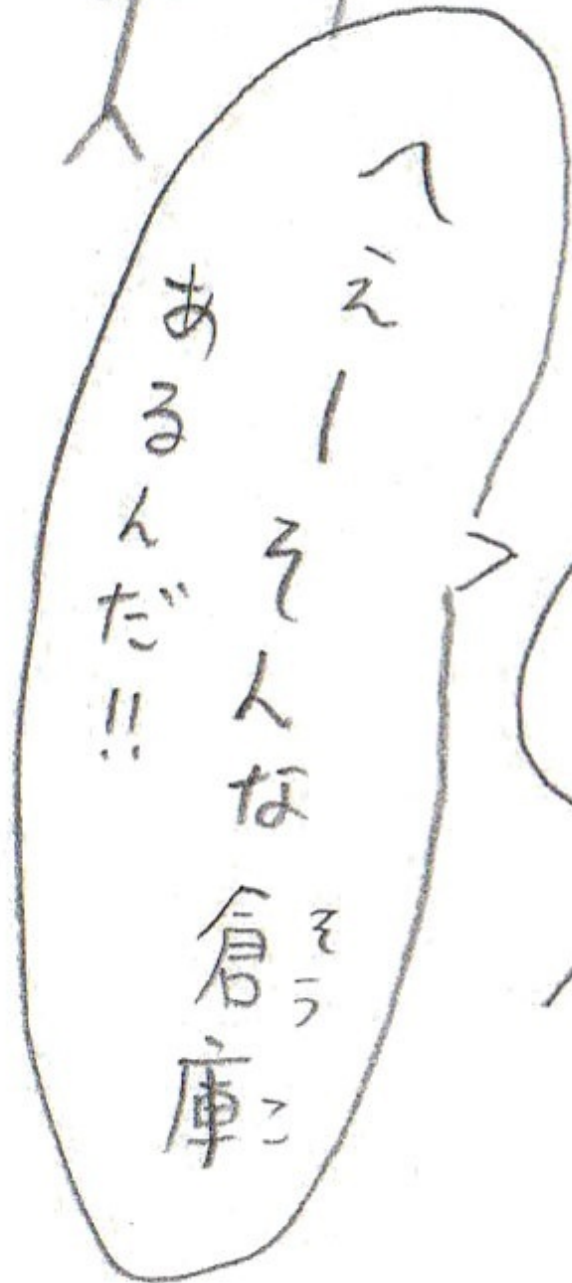 へぇーそんな倉庫
そうこ
あるんだ!!